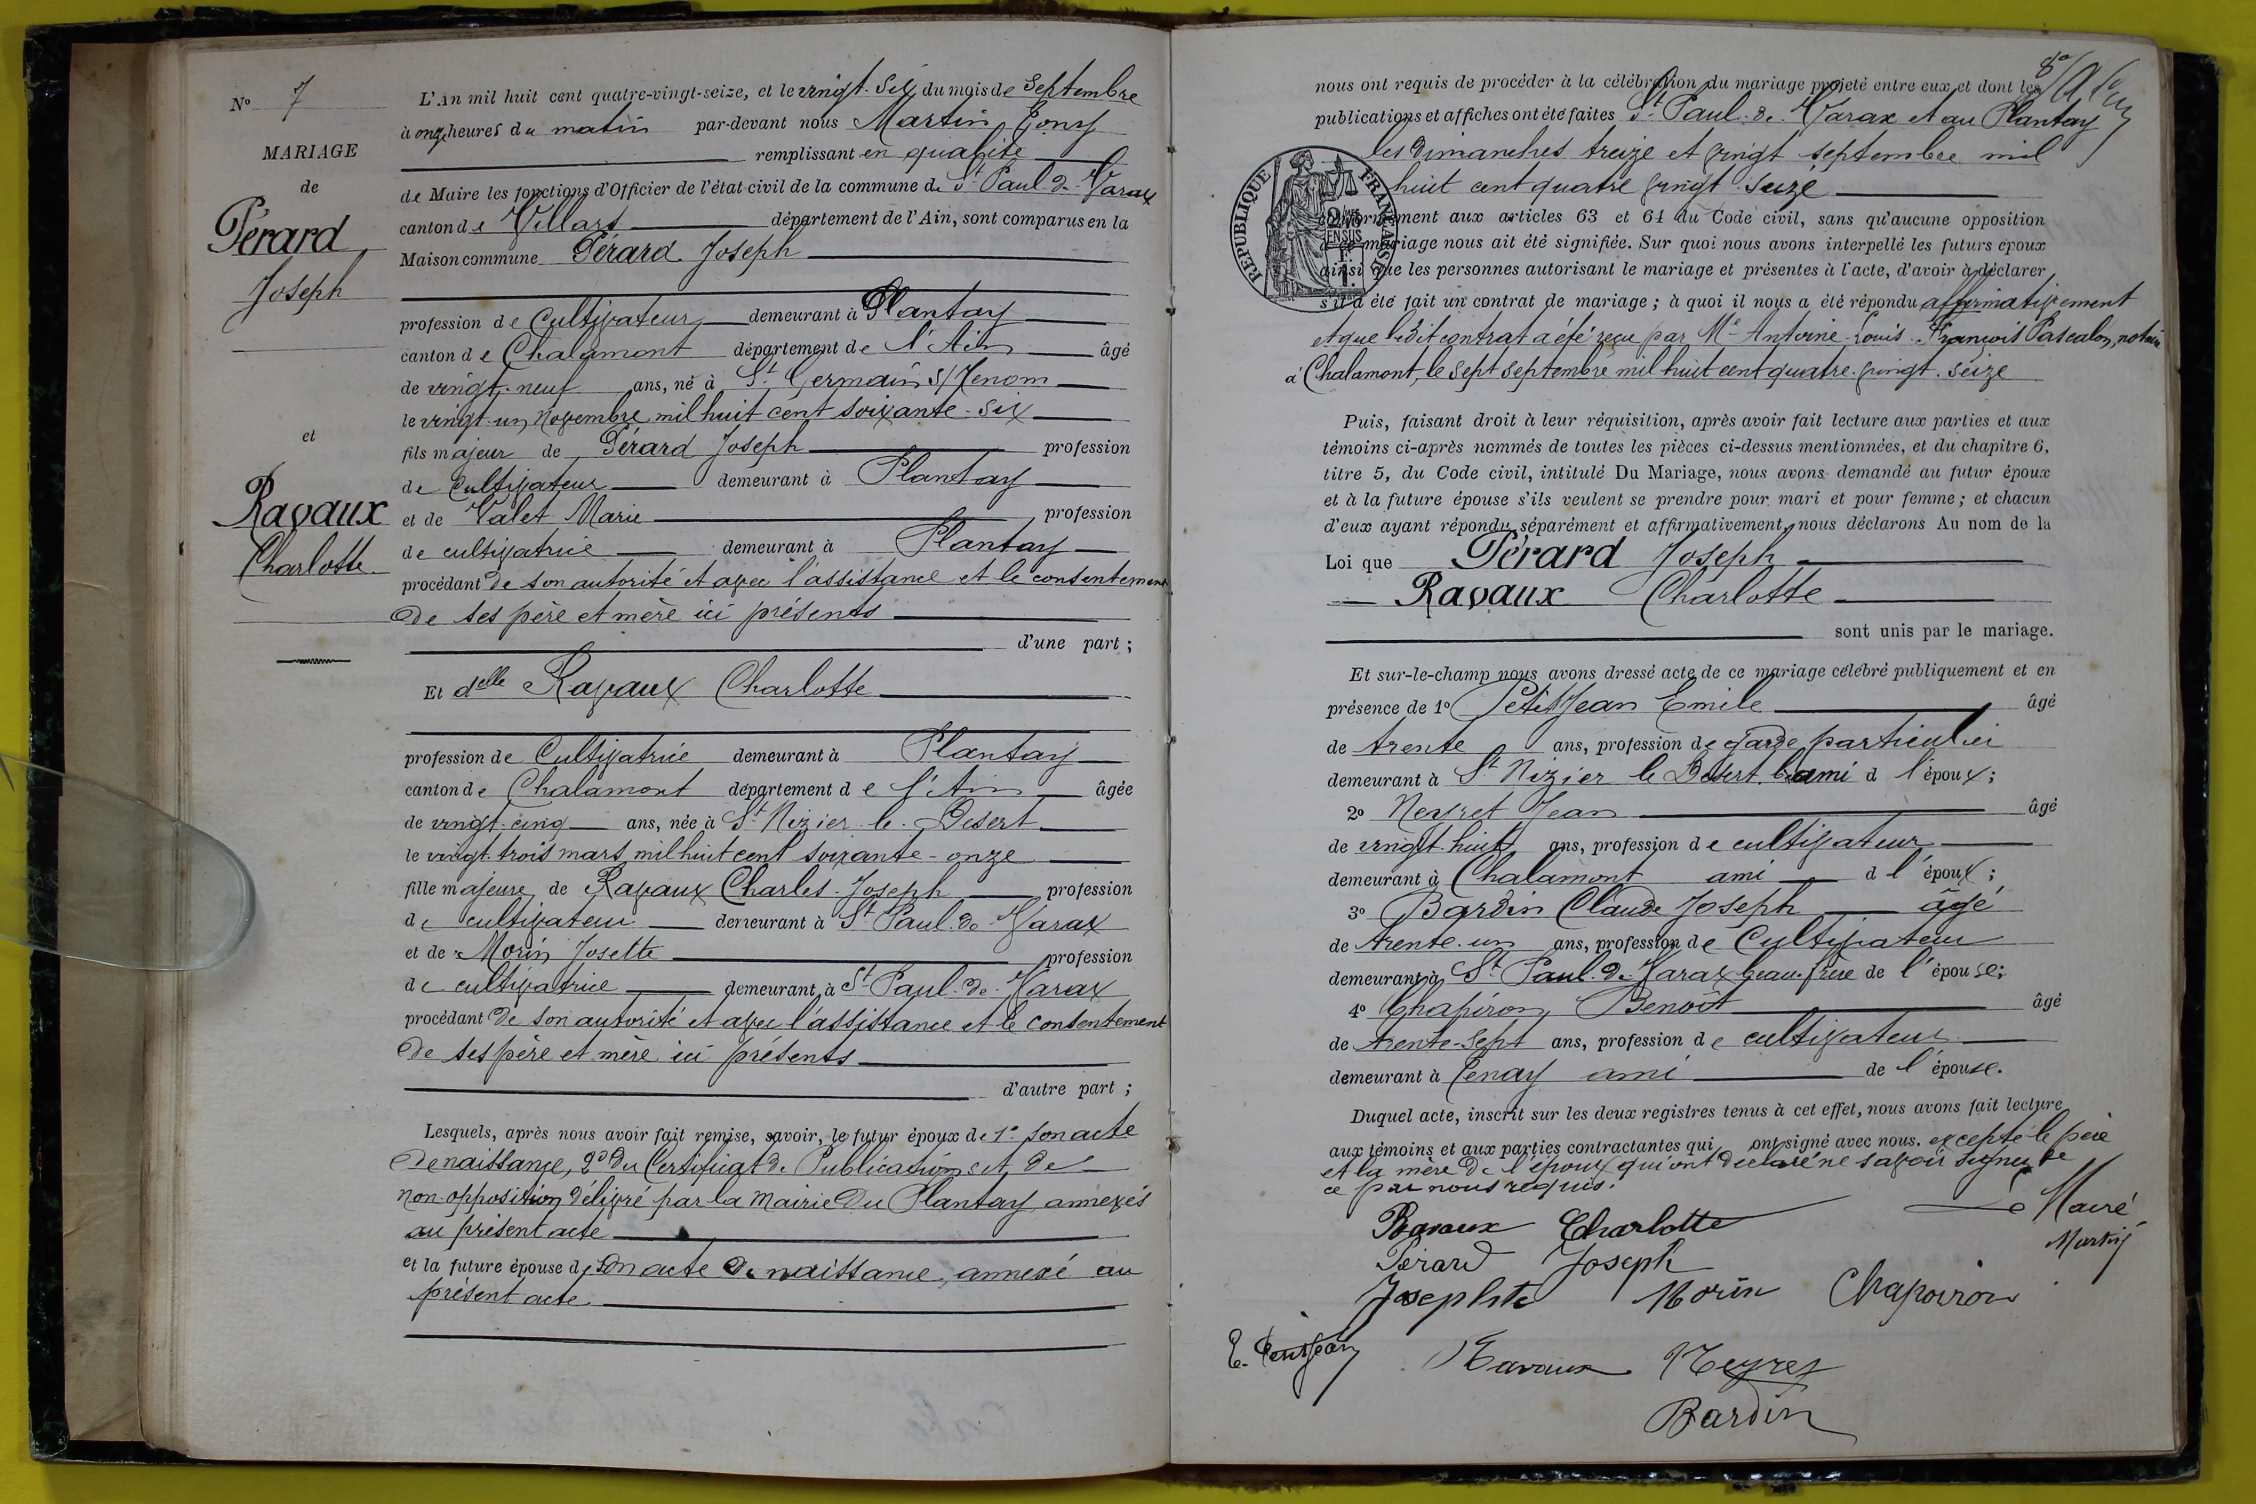 N° 7
MARIAGE
de
Pérard
Joseph
et
Ravaux
Charlotte
L'An mil huit cent quatre-vingt-seize, et le vingt-six du mois de Septembre
à onze heures du matin par-devant nous Martin Tony
remplissant en qualité
de Maire les fonctions d'Officier de l'état civil de la commune de St Paul-de-Varax
canton de Villars département de l'Ain, sont comparus en la
Maison commune Pérard Joseph
profession de Cultivateur demeurant à Plantay
canton de Chalamont département de l'Ain âgé
de vingt-neuf ans, né à St Germain s/Renom
le vingt-un Novembre mil huit cent soixante-six
fils majeur de Pérard Joseph profession
de Cultivateur demeurant à Plantay
et de Valet Marie profession
de cultivatrice demeurant à Plantay
procédant de son autorité et avec l'assistance et le consentement
de ses père et mère ici présents
d'une part ;
Et delle Ravaux Charlotte
profession de Cultivatrice demeurant à Plantay
canton de Chalamont département de l'Ain âgée
de vingt-cinq ans, née à St Nizier-le-Désert
le vingt-trois mars mil huit cent soixante-onze
fille majeure de Ravaux Charles-Joseph profession
de cultivateur demeurant à St Paul-de-Varax
et de Morin Josette profession
de cultivatrice demeurant à St Paul-de-Varax
procédant de son autorité et avec l'assistance et le consentement
de ses père et mère ici présents
d'autre part ;
Lesquels, après nous avoir fait remise, savoir, le futur époux de 1° son acte
de naissance, 2° du Certificat de Publications et de
non-opposition délivré par la Mairie du Plantay annexés
au présent acte
et la future épouse de son acte de naissance, annexé au
présent acte
nous ont requis de procéder à la célébration du mariage projeté entre eux et dont les
publications et affiches ont été faites St Paul-de-Varax et au Plantay
les dimanches treize et vingt septembre mil
huit cent quatre vingt-seize
RÉPUBLIQUE FRANÇAISE
conformément aux articles 63 et 64 du Code civil, sans qu'aucune opposition
à ce mariage nous ait été signifiée. Sur quoi nous avons interpellé les futurs époux
ainsi que les personnes autorisant le mariage et présentes à l'acte, d'avoir à déclarer
s'il a été fait un contrat de mariage ; à quoi il nous a été répondu affirmativement
et que ledit contrat a été reçu par Me Antoine-Louis-François Pascalon, notaire
à Chalamont, le sept septembre mil huit cent quatre-vingt-seize
Puis, faisant droit à leur réquisition, après avoir fait lecture aux parties et aux
témoins ci-après nommés de toutes les pièces ci-dessus mentionnées, et du chapitre 6,
titre 5, du Code civil, intitulé Du Mariage, nous avons demandé au futur époux
et à la future épouse s'ils veulent se prendre pour mari et pour femme ; et chacun
d'eux ayant répondu séparément et affirmativement, nous déclarons Au nom de la
Loi que Pérard Joseph
Ravaux Charlotte
sont unis par le mariage.
Et sur-le-champ nous avons dressé acte de ce mariage célébré publiquement et en
présence de 1° Petitjean Emile âgé
de trente ans, profession de garde particulier
demeurant à St Nizier le Désert ami d l'époux ;
2° Neyret Jean âgé
de vingt-huit ans, profession de cultivateur
demeurant à Chalamont ami d l'époux ;
3° Bardin Claude Joseph âgé
de trente-un ans, profession de Cultivateur
demeurant à St Paul-de-Varax beau-frère de l'épouse ;
4° Chapiron Benoît âgé
de trente-sept ans, profession de cultivateur
demeurant à Cenay ami de l'épouse.
Duquel acte, inscrit sur les deux registres tenus à cet effet, nous avons fait lecture
aux témoins et aux parties contractantes qui ont signé avec nous. excepté le père
et la mère de l'époux qui ont déclaré ne savoir signer de
ce par nous requis.
Le Maire
Ravaux Charlotte
Martin
Pérard Joseph
Josephte Morin Chapoiron
E. Petitjean
Ravaux Neyret
Bardin